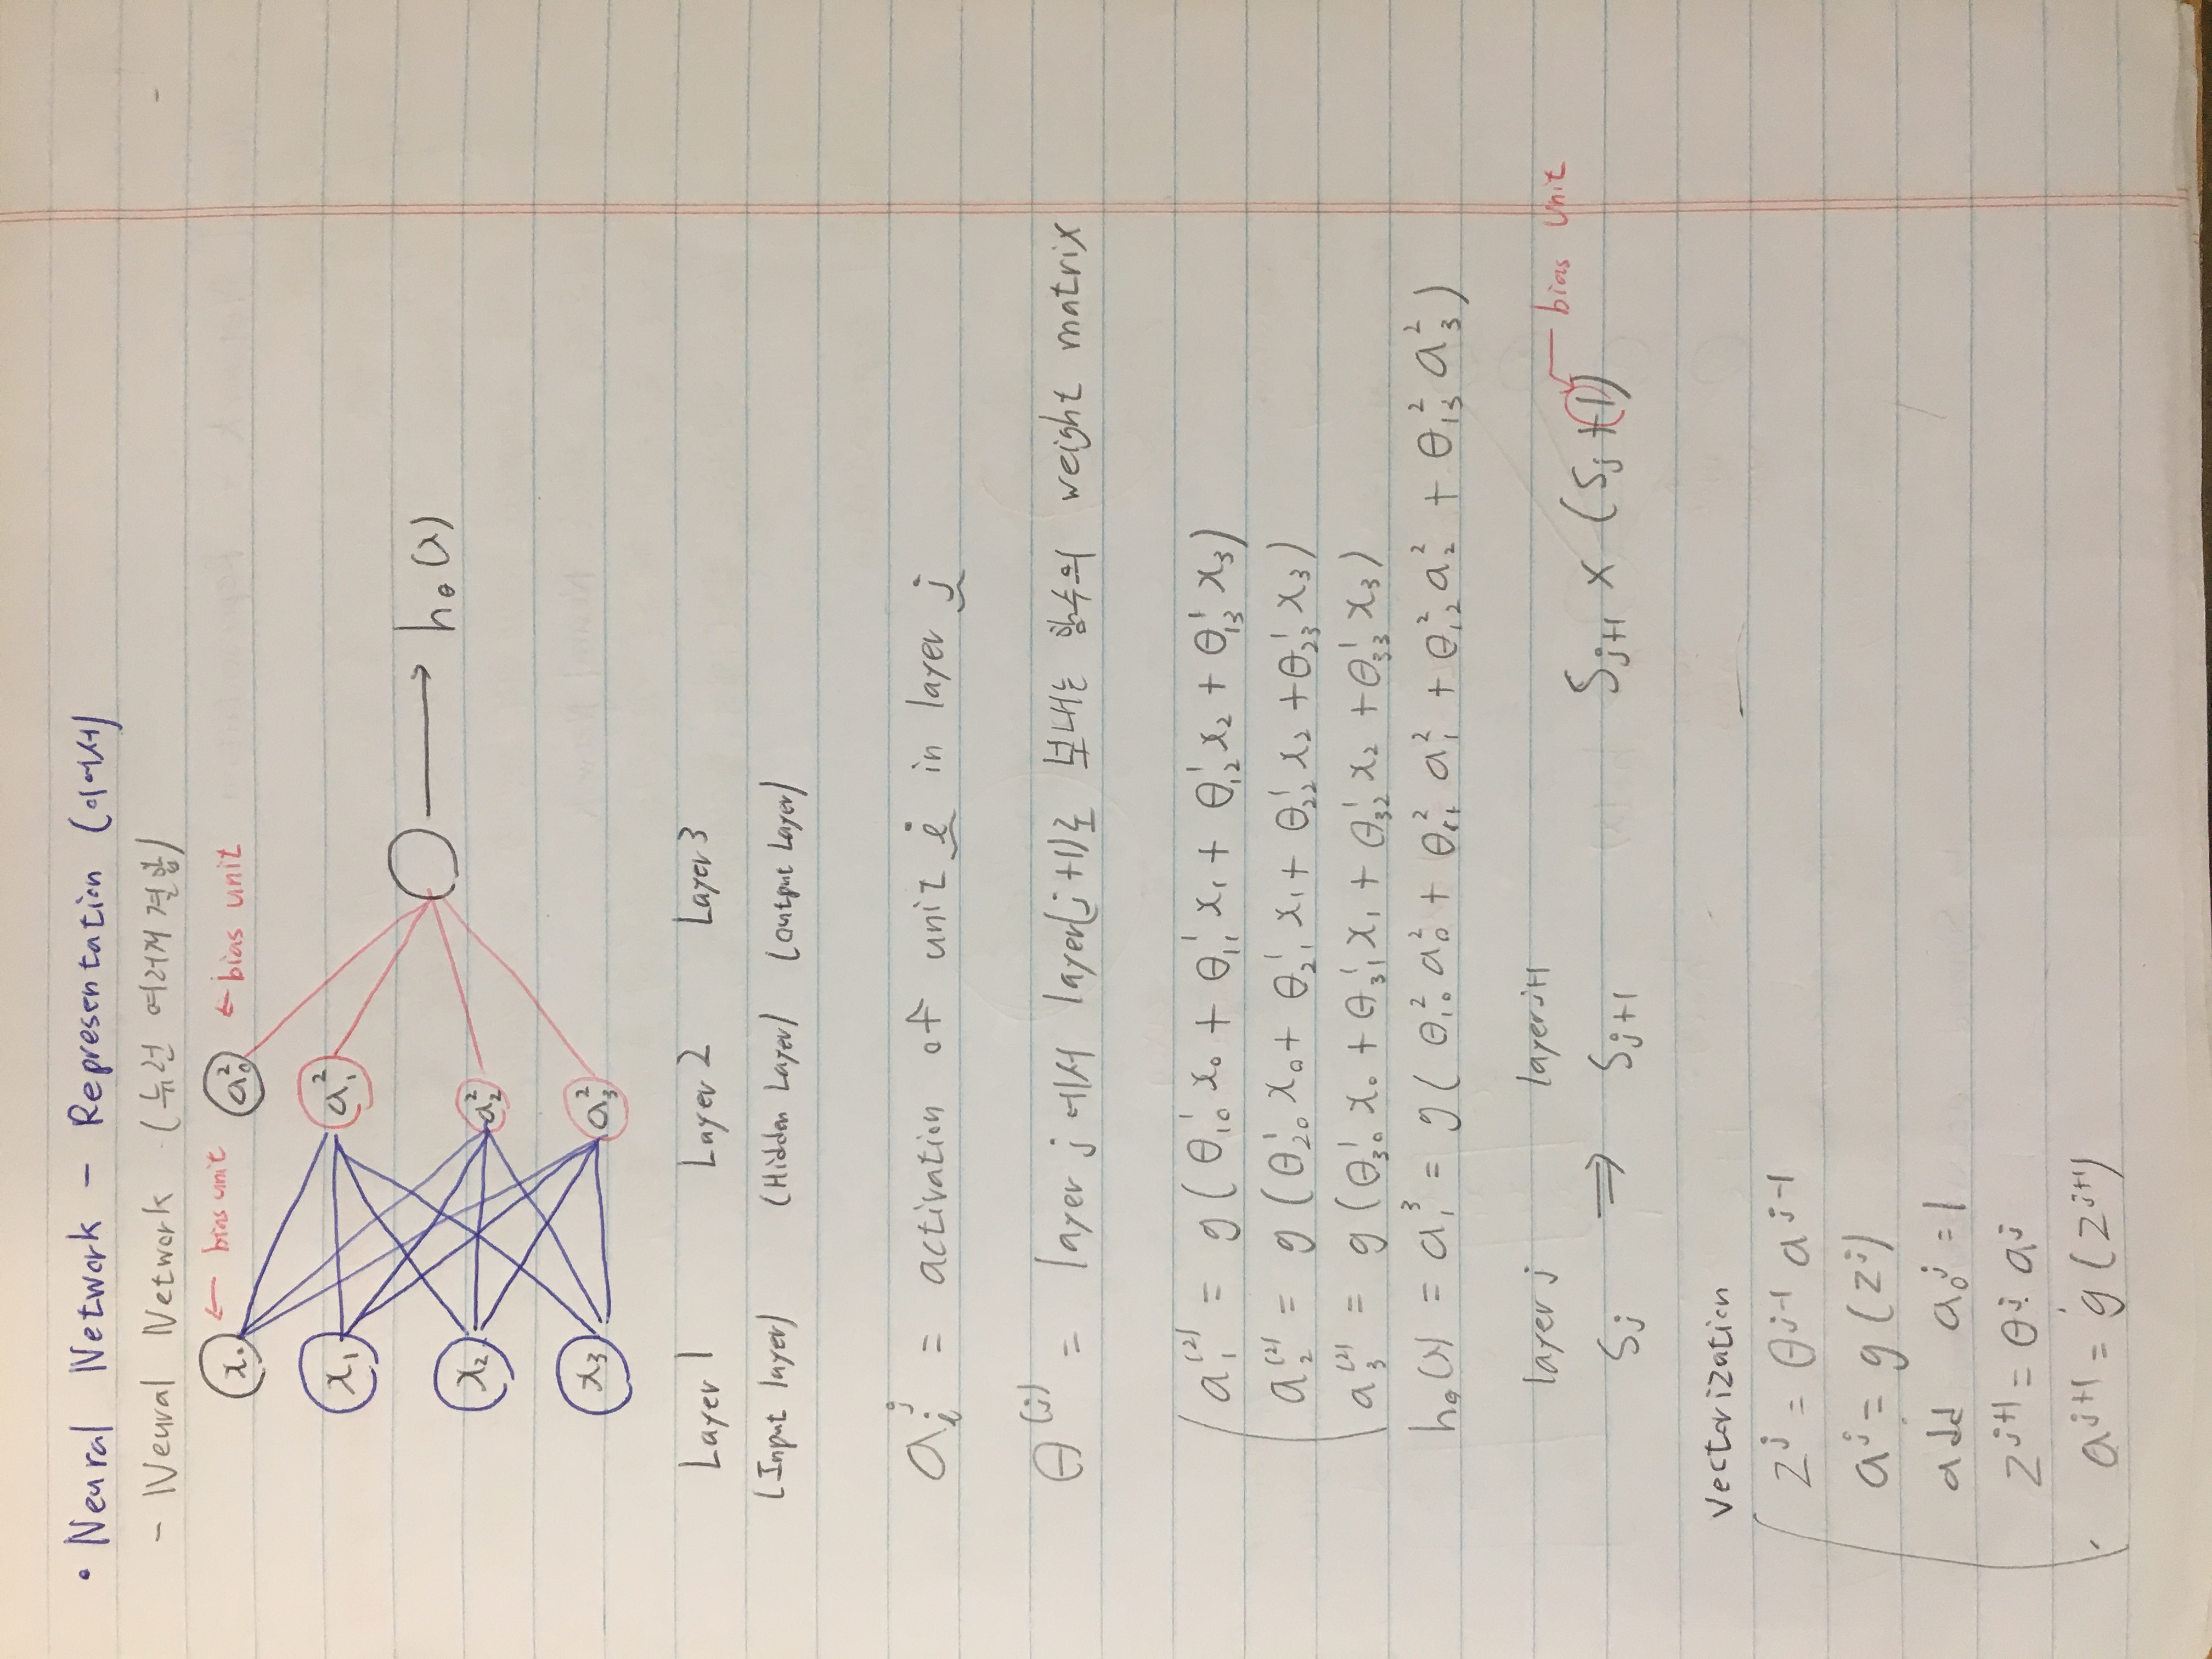 • Neural Network – Representation (이어서)
– Neural Network (뉴런 여러개 결합)
x₀ ← bias unit a₀² ← bias unit
x₁ a₁²
h_θ(x)
x₂ a₂²
x₃ a₃²
Layer 1 Layer 2 Layer 3
(Input layer) (Hidden Layer) (Output Layer)
aᵢʲ = activation of unit i in layer j
θ⁽ʲ⁾ = layer j에서 layer(j+1)로 보내는 함수의 weight matrix
a₁⁽²⁾ = g(θ₁₀¹x₀ + θ₁₁¹x₁ + θ₁₂¹x₂ + θ₁₃¹x₃)
a₂⁽²⁾ = g(θ₂₀¹x₀ + θ₂₁¹x₁ + θ₂₂¹x₂ + θ₂₃¹x₃)
a₃⁽²⁾ = g(θ₃₀¹x₀ + θ₃₁¹x₁ + θ₃₂¹x₂ + θ₃₃¹x₃)
h_θ(x) = a₁³ = g(θ₁₀²a₀² + θ₁₁²a₁² + θ₁₂²a₂² + θ₁₃²a₃²)
layer j layer j+1
bias unit
Sⱼ ⇒ Sⱼ₊₁ Sⱼ₊₁ × (Sⱼ+1)
Vectorization
zʲ = θʲ⁻¹ aʲ⁻¹
aʲ = g(zʲ)
add a₀ʲ = 1
zʲ⁺¹ = θʲ aʲ
aʲ⁺¹ = g(zʲ⁺¹)